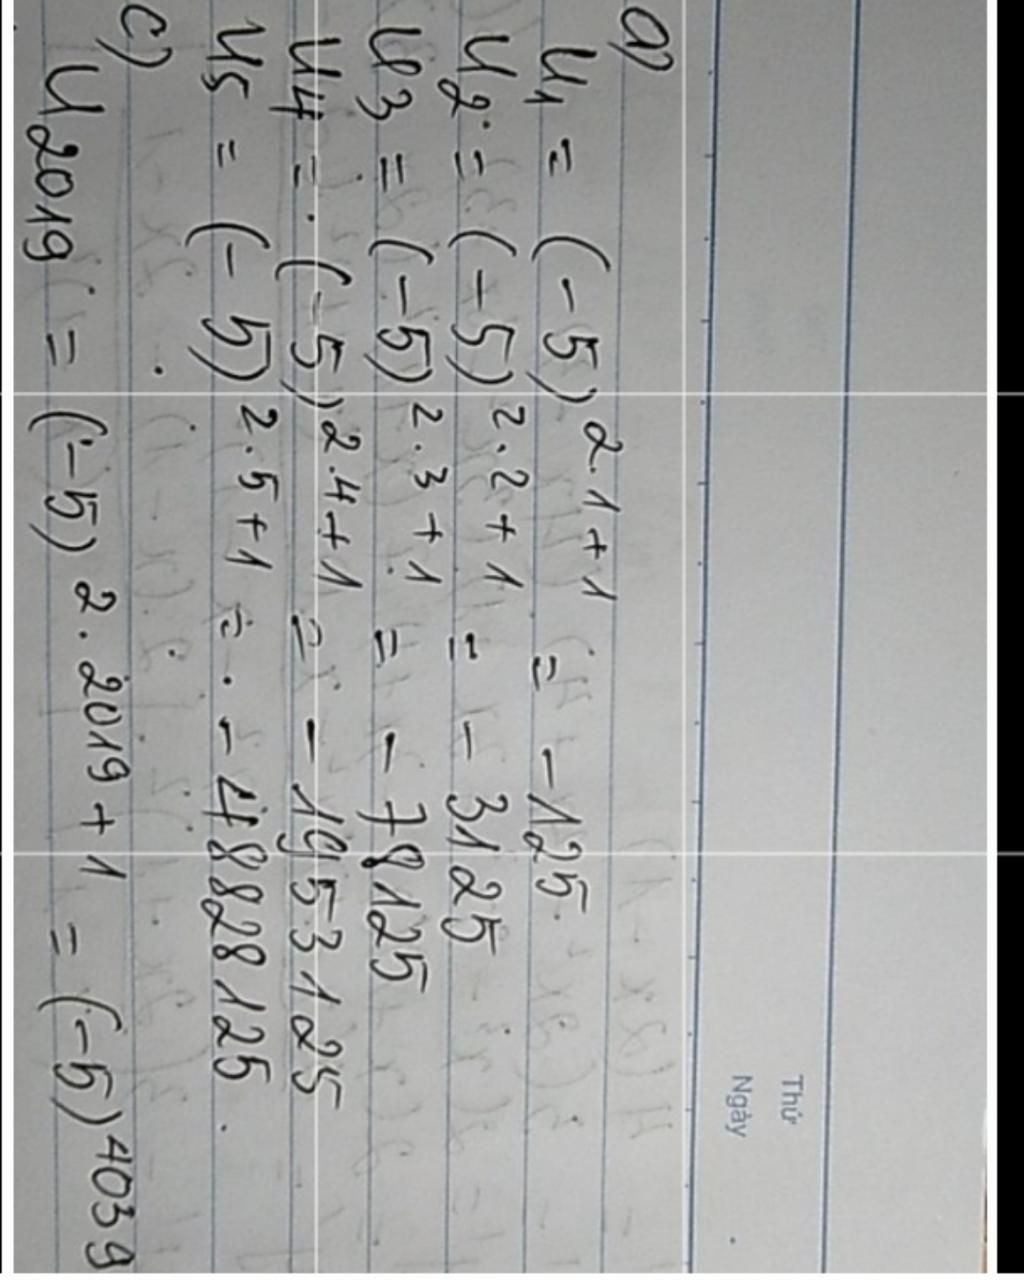 Thứ
Ngày
a)
U1 = (-5)^2.1+1 = -125
U2 = (-5)^2.2+1 = -3125
U3 = (-5)^2.3+1 = -78125
U4 = (-5)^2.4+1 = -1953125
U5 = (-5)^2.5+1 = -48828125.
c)
U2019 = (-5)^2.2019+1 = (-5)^4039